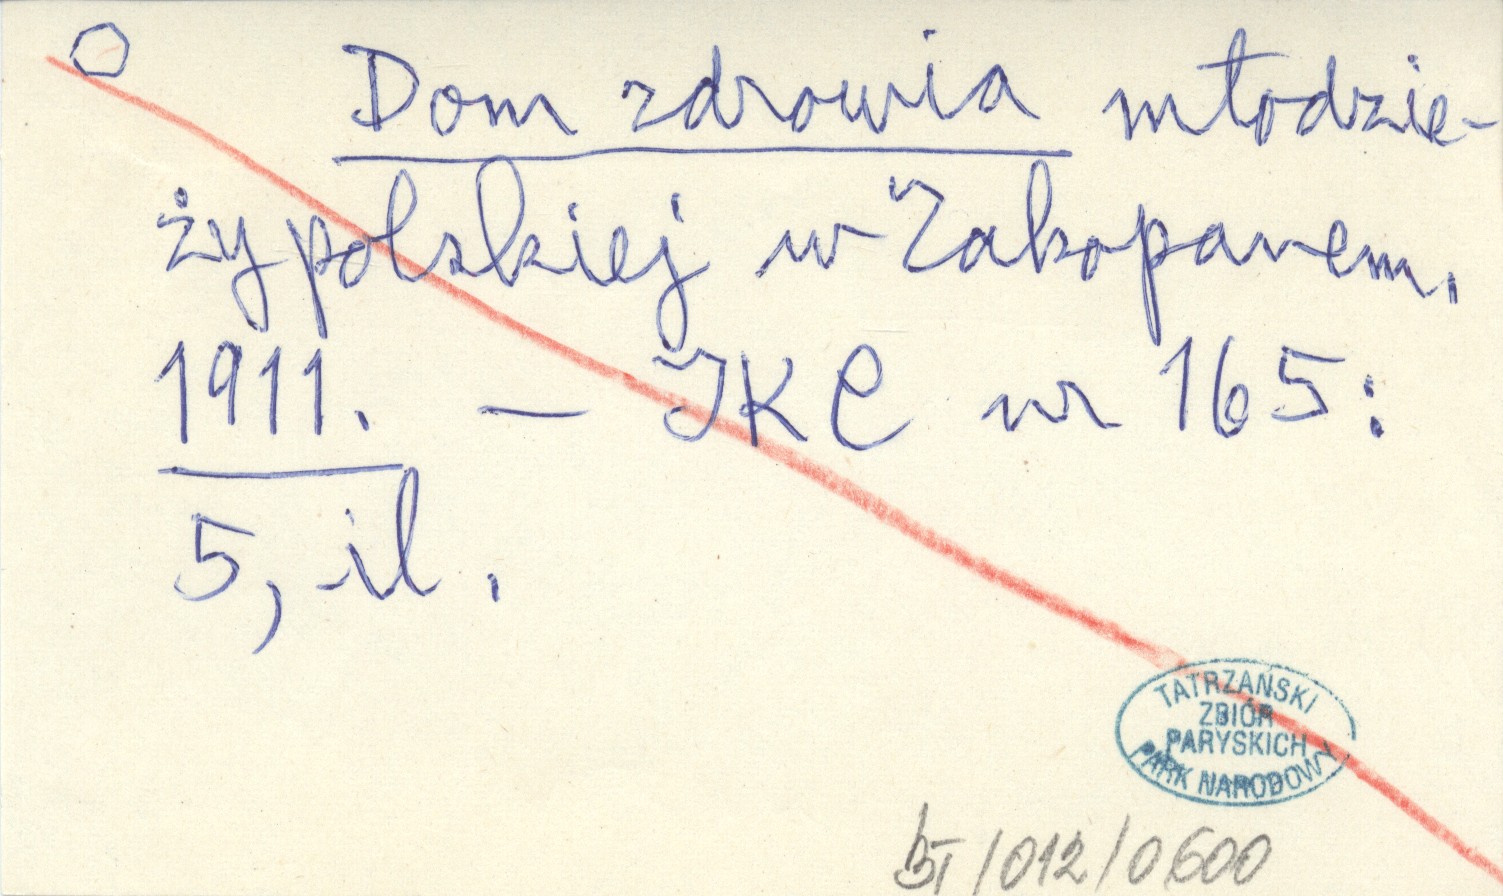 Dom zdrowia młodzie-
ży polskiej w Zakopanem.
1911. — IKC nr 165:
5, il.
TATRZAŃSKI
ZBIÓR
PARYSKICH
PARK NARODOWY
BT/012/0600